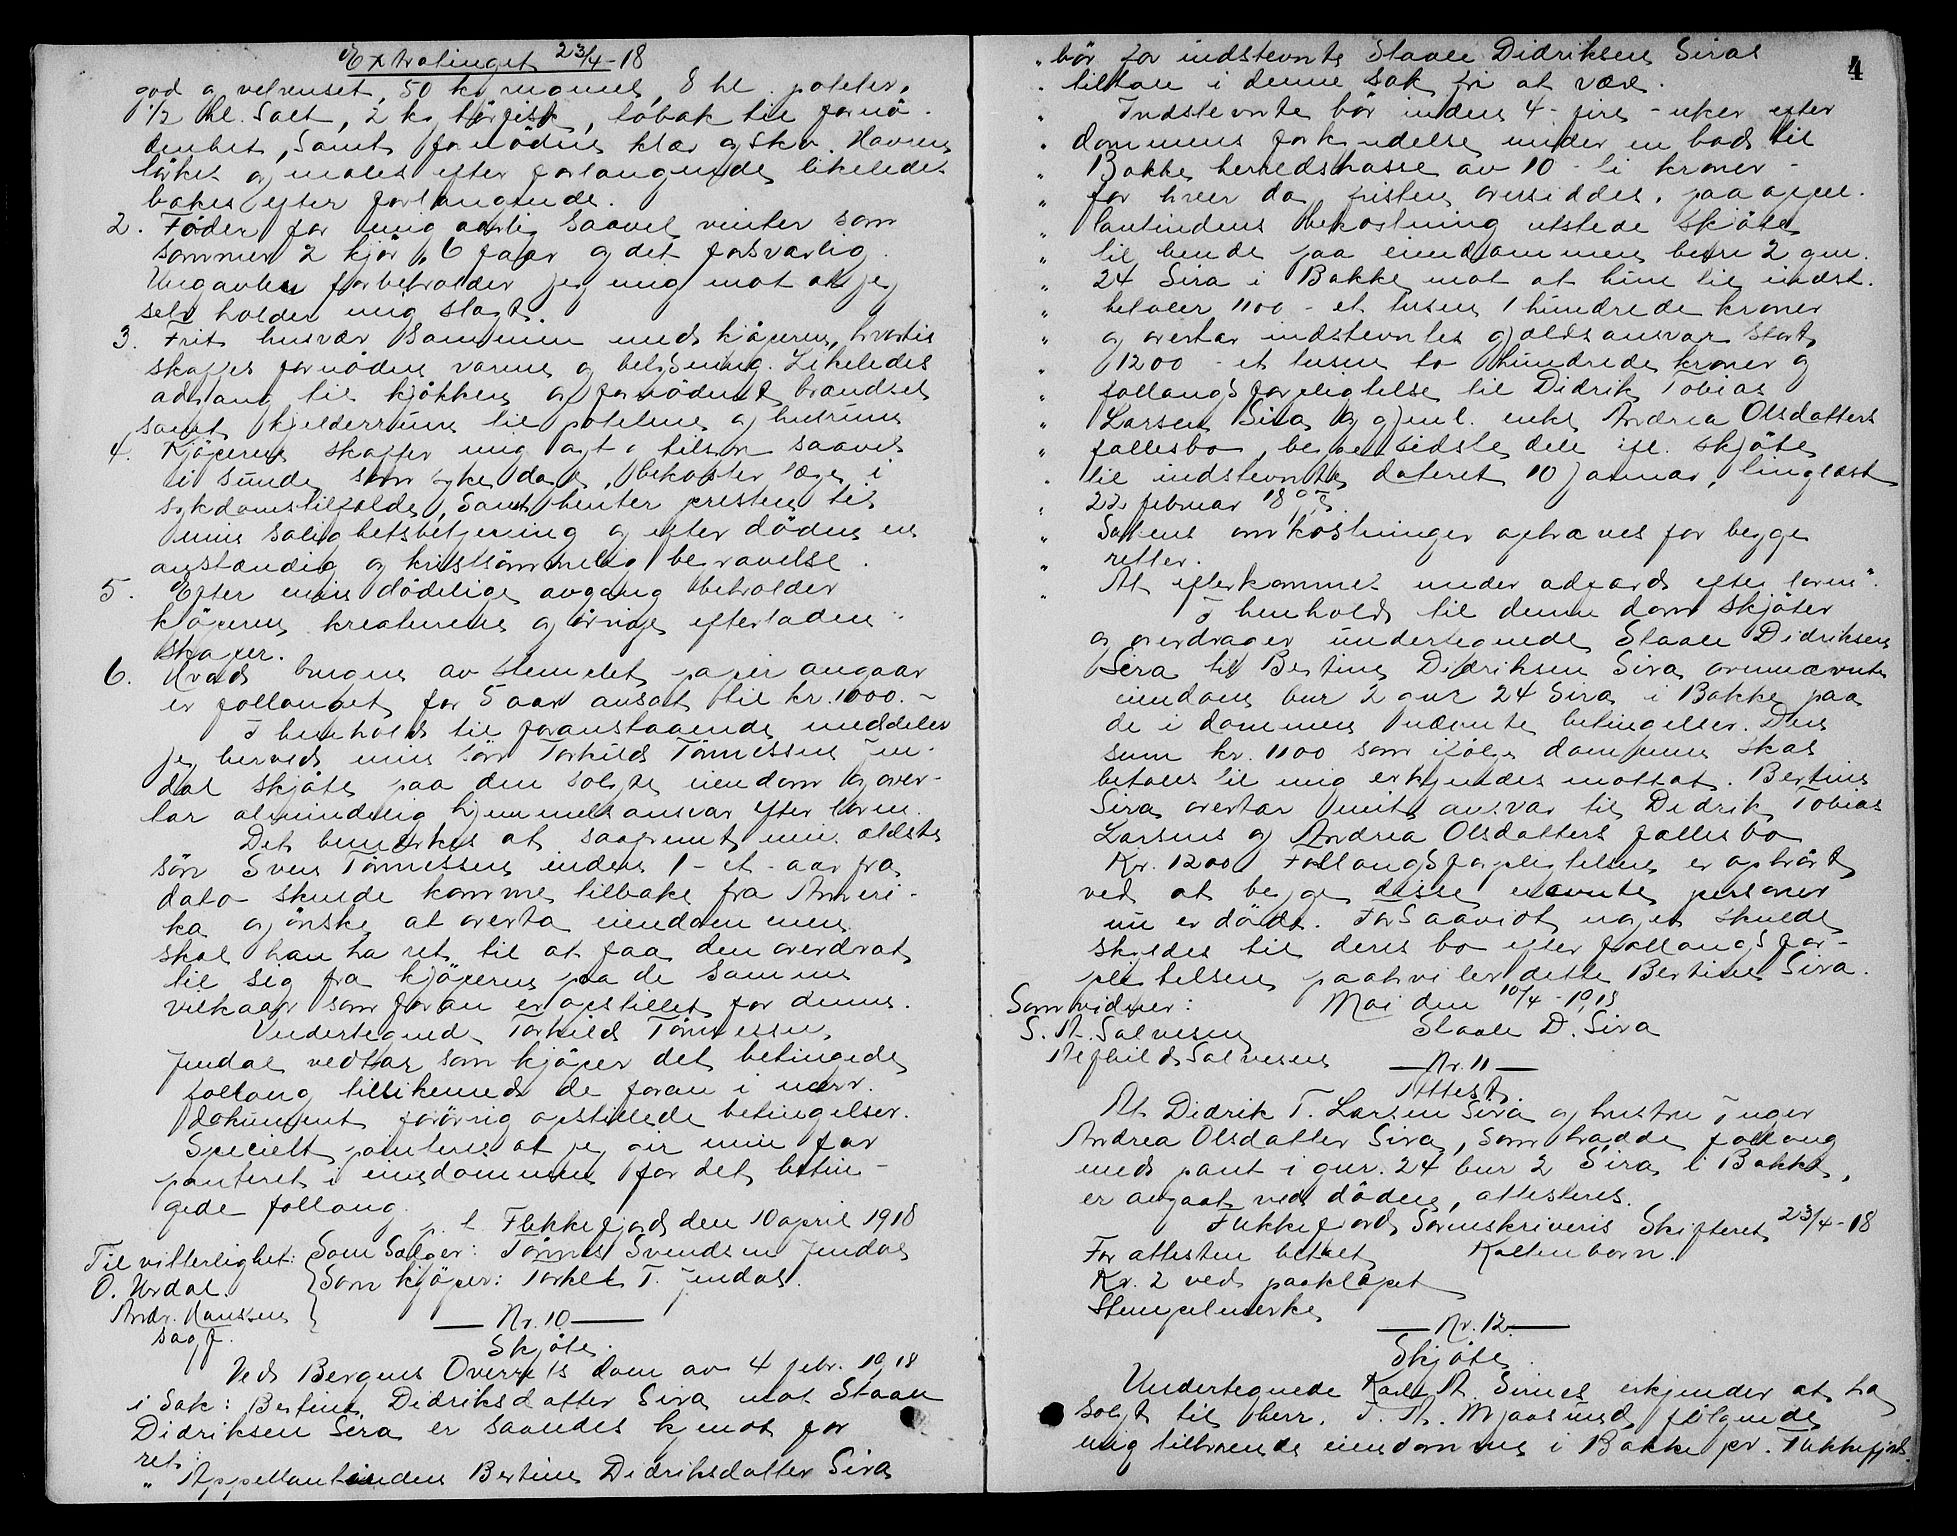 Extratinget 23/4-18
god og velrenset, 50 kg. mamel, 8 hl. poteter,
1/2 hl. Salt, 2 kg tørfisk, tobak til fornø-
denhet, samt fornødne klær og sko. Havren
tørkes og males efter forlangende, likeledes
bakes efter forlangende.
2. Føder for mig aarlig saavel vinter som
sommer 2 kjør, 6 faar og det forsvarlig.
Ungavlen forbeholder jeg mig mot at jeg
selv holder mig slagt.
3. Frit husvær sammen med kjøperen, hvortil
skaffes fornøden varme og belysning. Likeledes
adgang til kjøkken og fornødent brændsel
samt kjelderrum til potetene og husrum
4. Kjøperen skaffer mig agt o tilsyn saavel
i sunde som syke dage, bekoster læge i
sykdomstilfælde, samt henter presten til
min salighetsbetjening og efter døden en
anstændig og kristsømmelig begravelse.
5. Efter min dødelige avgang beholder
kjøperen kreaturene og øvrige efterladen-
skaper.
6. Hvad bruken av stemplet papir angaar
er follauget for 5 aar ansat til kr. 1000.-
I henhold til foranstaaende meddeler
jeg herved min søn Torkild Tønnessen Jen-
dal skjøte paa den solgte eiendom og over-
tar almindelig hjemmelsansvar efter loven.
Det bemerkes at saafremt min ældste
søn Sven Tønnessen inden 1 - et - aar fra
dato skulde komme tilbake fra Ameri-
ka og ønske at overta eiendommen
skal han ha ret til at faa den overdrat
til sig fra kjøperen paa de samme
vilkaar som foran er opstillet for denne.
Undertegnede Torkild Tønnessen
Jendal vedtar som kjøper det betingede
follaug tillikemed de foran i nærv.
dokument forøvrig opstillede betingelser.
Specielt panteres at jeg gir min far
panteret i eiendommen for det betin-
gede follaug.
p. t. Flekkefjord den 10 april 1918
Til vitterlighet: Som Sælger: Tønnes Svendsen Jendal
O. Urdal. Som kjøper: Torkel T. Jendal.
Andr. Hanssen
sagf.
— Nr. 10 —
Skjøte.
Ved Bergens Overrets dom av 4 febr. 1918
i Sak: Bertine Didriksdatter Sira mot Staale
Didriksen Sira er saaledes kjendt for
ret:
" Appellantinden Bertine Didriksdatter Sira
4
" bør for indstevnte Staale Didriksens Siras
" tiltale i denne sak fri at være.
" Indstevnte bør inden 4 - fire - uker efter
" dommens forkyndelse under en bod til
" Bakke herredskasse av 10 - ti kroner -
" for hver dag fristen oversiddes, paa appel-
" lantindens bekostning utstede skjøte
" til hende paa eiendommen bnr 2 gnr.
" 24 Sira i Bakke mot at hun til indst.
" betaler 1100 - et tusen 1 hundrede kroner
" og overtar indstevntes gjældsansvar stort
" 1200 - et tusen to hundrede kroner og
" follaugsforpligtelse til Didrik Tobias
" Larsen Sira og gjenl. enke Andrea Olsdatters
" fællesbo, begge sidste dele ifl. skjøte
" til indstevnte, dateret 10 januar, tinglæst
" 22 februar
" Sakens omkostninger ophæves for begge
" retter.
" At efterkommes under adfærd efter loven".
I henhold til denne dom skjøter
og overdrager undertegnede Staale Didriksen
Sira til Bertine Didriksen Sira ovennævnte
eiendom bnr 2 gnr 24 Sira i Bakke paa
de i dommen nævnte betingelser. Den
sum kr. 1100 som ifølge dommen skal
betales til mig erkjendes mottat. Bertine
Sira overtar mit ansvar til Didrik Tobias
Larsens og Andrea Olsdatters fællesbo
Kr. 1200. Follaugsforpligtelsen er ophørt
ved at begge disse nævnte personer
nu er døde. Forsaavidt noget skulde
skyldes til deres bo efter follaugsfor-
pligtelsen paahviler dette Bertine Sira.
Som vidner: Moi den 10/4-1918
S. A. Salvesen Staale D. Sira
Salvesen
— Nr. 11 —
Attest.
At Didrik T. Larsen Sira og hustru Inger
Andrea Olsdatter Sira, som hadde follaug
med pant i gnr. 24 bnr 2 Sira i Bakke,
er avgaat ved døden, attesteres.
Flekkefjord Sorenskriveris Skifteret 23/4-18
For attesten betalt Kaltenborn.
Kr. 2 ved paaklæpet
Stempelmerke
— Nr. 12. —
Skjøte.
Undertegnede Karl A. Sirnes erkjender at ha
solgt til herr. T. A. Mjaasund følgende
mig tilhørende eiendomme i Bakke pr. Flekkefjord.